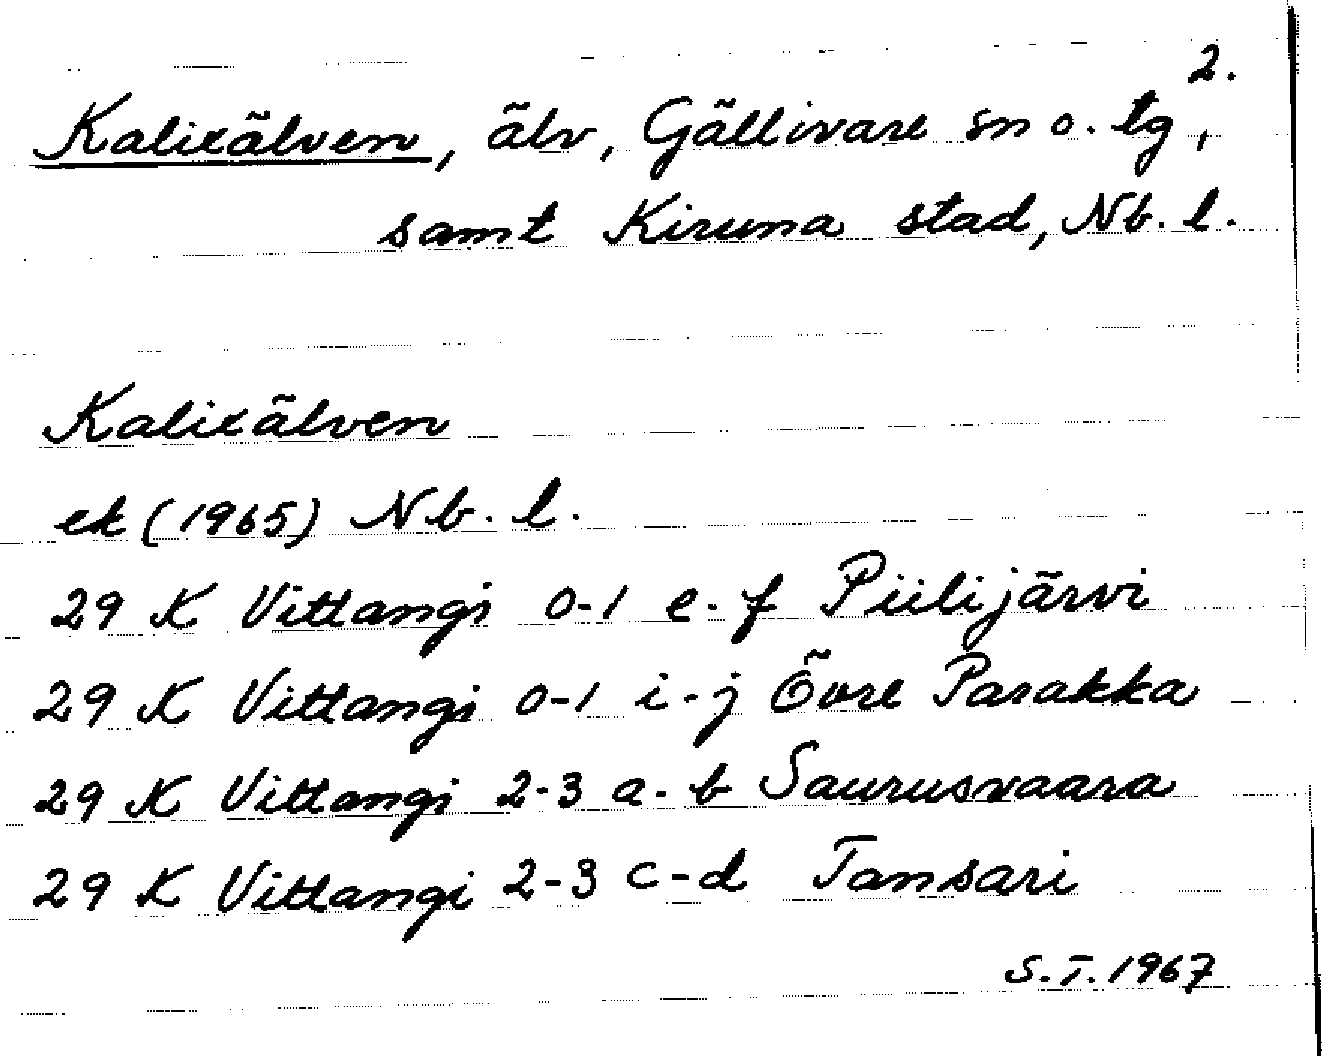 2.
Kalixälven, älv, Gällivare sn o. tg,
samt Kiruna stad, Nb. l.
Kalixälven
ek (1965) Nb. l.
29 K Vittangi 0-1 e-f Piilijärvi
29 K Vittangi 0-1 i-j Övre Parakka
29 K Vittangi 2-3 a-b Saurusvaara
29 K Vittangi 2-3 c-d Tansari
S.T. 1967